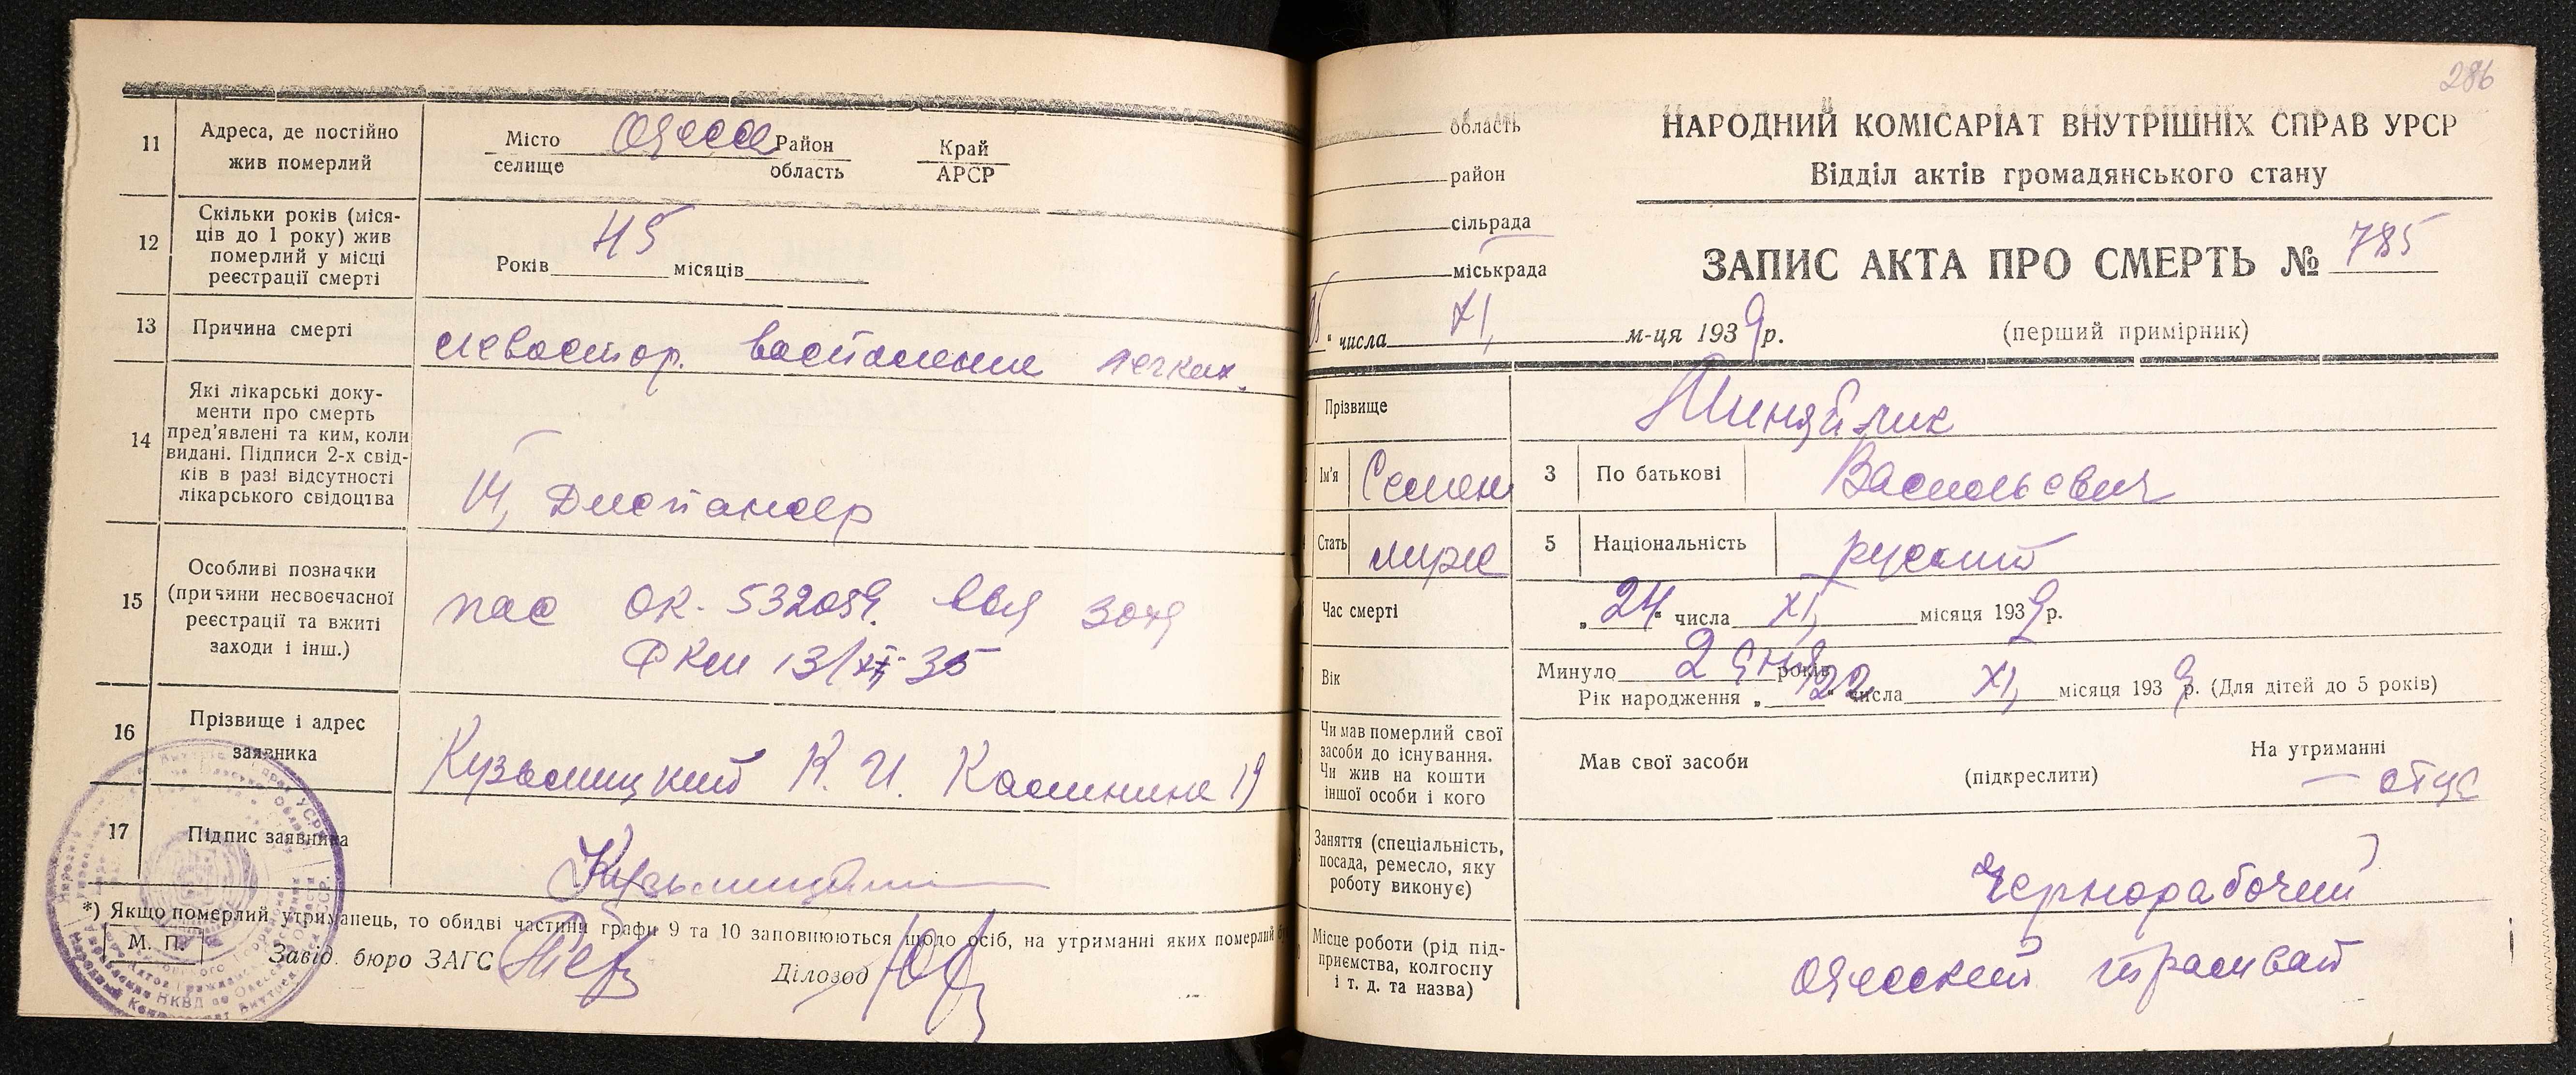 11
Адреса, де постійно
жив померлий
Місто Одесса Район Край
селище область АРСР
12
Скільки років (міся-
ців до 1 року) жив
померлий у місці
реєстрації смерті
45
Років місяців
13
Причина смерті
восполение легких.
14
Які лікарські доку-
менти про смерть
пред'явлені та ким, коли
видані. Підписи 2-х свід-
ків в разі відсутності
лікарського свідоцтва
Диспансер
15
Особливі позначки
(причини несвоєчасної
реєстрації та вжиті
заходи і інш.)
пас ОК. 532059.
13/XII 35
16
Прізвище і адрес
заявника
Кузьмицкий К. И. Калинина 19
17
Підпис заявника
*) Якщо померлий утриманець, то обидві частини графи 9 та 10 заповнюються щодо осіб, на утриманні яких померлий
М. П.
Завід. бюро ЗАГС
Діловод
286
область
район
сільрада
міськрада
" числа XI, м-ця 1939 р.
НАРОДНИЙ КОМІСАРІАТ ВНУТРІШНІХ СПРАВ УРСР
Відділ актів громадянського стану
ЗАПИС АКТА ПРО СМЕРТЬ № 785
(перший примірник)
Прізвище Миняйлик
Ім'я Семен 3 По батькові Васильевич
Стать 5 Національність руский
Час смерті „24" числа XI, місяця 1939 р.
Вік
Минуло 2 дня років
Рік народження „22" числа XI, місяця 1939 р. (Для дітей до 5 років)
Чи мав померлий свої
засоби до існування.
Чи жив на кошти
іншої особи і кого
Мав свої засоби (підкреслити) На утриманні
— отца
Заняття (спеціальність,
посада, ремесло, яку
роботу виконує)
Чернорабочий
Місце роботи (рід під-
приємства, колгоспу
і т. д. та назва)
Одесский трамвай